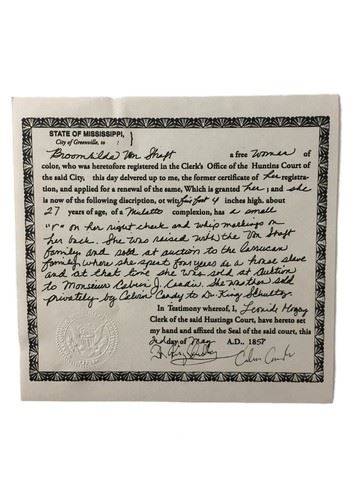 STATE OF MISSISSIPPI, }
City of Greenville, to
Broomhilda Von Shaft a free woman of
color, who was heretofore registered in the Clerk's Office of the Huntins Court of
the said City, this day delivered up to me, the former certificate of her registra-
tion, and applied for a renewal of the same, Which is granted her; and she
is now of the following discription, ot wit five foot 4 inches high. about
27 years of age, of a Mulatto complexion, has a small
"r" on her right cheek and whip markings on
her back. She was raised with the Von Shaft
family and sold at auction to the
family where she spent four years as a house slave
and at that time she was sold at Auction
to Monsieur Calvin J. Candie. She was then sold
privately by Calvin Candy to Dr King Schultz
In Testimony whereof, I,
Clerk of the said Hustings Court, have hereto set
my hand and affixed the Seal of the said court, this
day of May A.D.. 1858